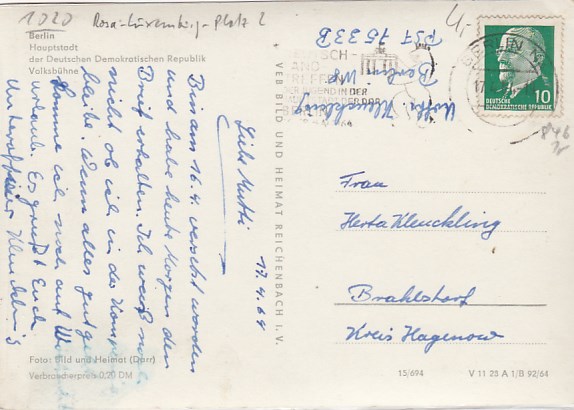 1020 Rosa-Luxemburg-Platz 2
Berlin
Hauptstadt
der Deutschen Demokratischen Republik
Volksbühne
17.4.64
Liebe Mutti
Bin am 16.4 versetzt worden
und habe heute Morgen den
Brief erhalten. Ich weiß
nicht ob ich in der
bleibe. Wenn alles gut
komme ich noch auf
Urlaub. Es grüßt Euch
Foto: Bild und Heimat (Darr)
Verbraucherpreis 0,20 DM
VEB BILD UND HEIMAT REICHENBACH I. V.
Berlin
PSF 7533B
BERLIN
DEUTSCHE
DEMOKRATISCHE REPUBLIK
10
Frau
Herta Kleuckling
Brahlstorf
Kreis Hagenow
15/694
V 11 28 A 1/B 92/64